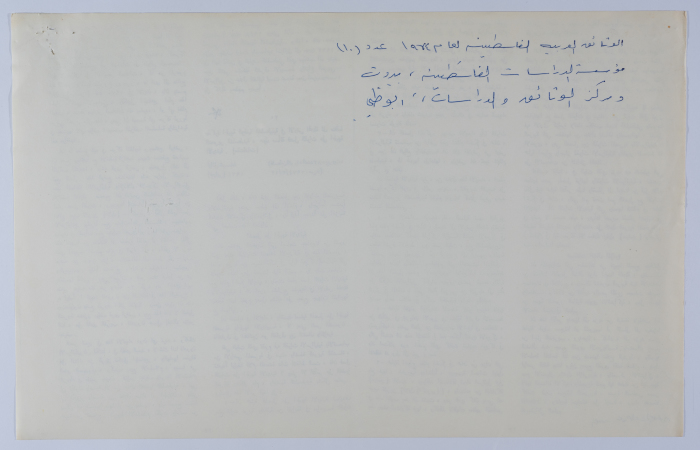 الوثائق العربية الفلسطينية لعام ١٩٧٤ عدد (١٠)
مؤسسة الدراسات الفلسطينية ، بيروت
ومركز الوثائق والدراسات ، ابوظبي